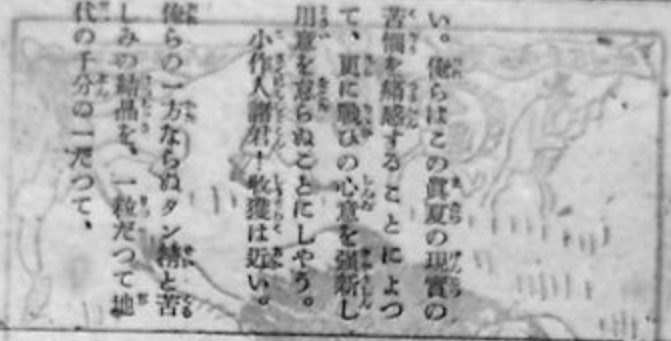 い。俺らはこの眞夏の現實の
苦惱を痛感することによつ
て、更に戰ひの心意を強靱し
用意を怠らぬことにしやう。
小作人諸君！收獲は近い。
俺らの一方ならぬタン精と苦
しみの結晶を、一粒だつて地
代の千分の一だつて、